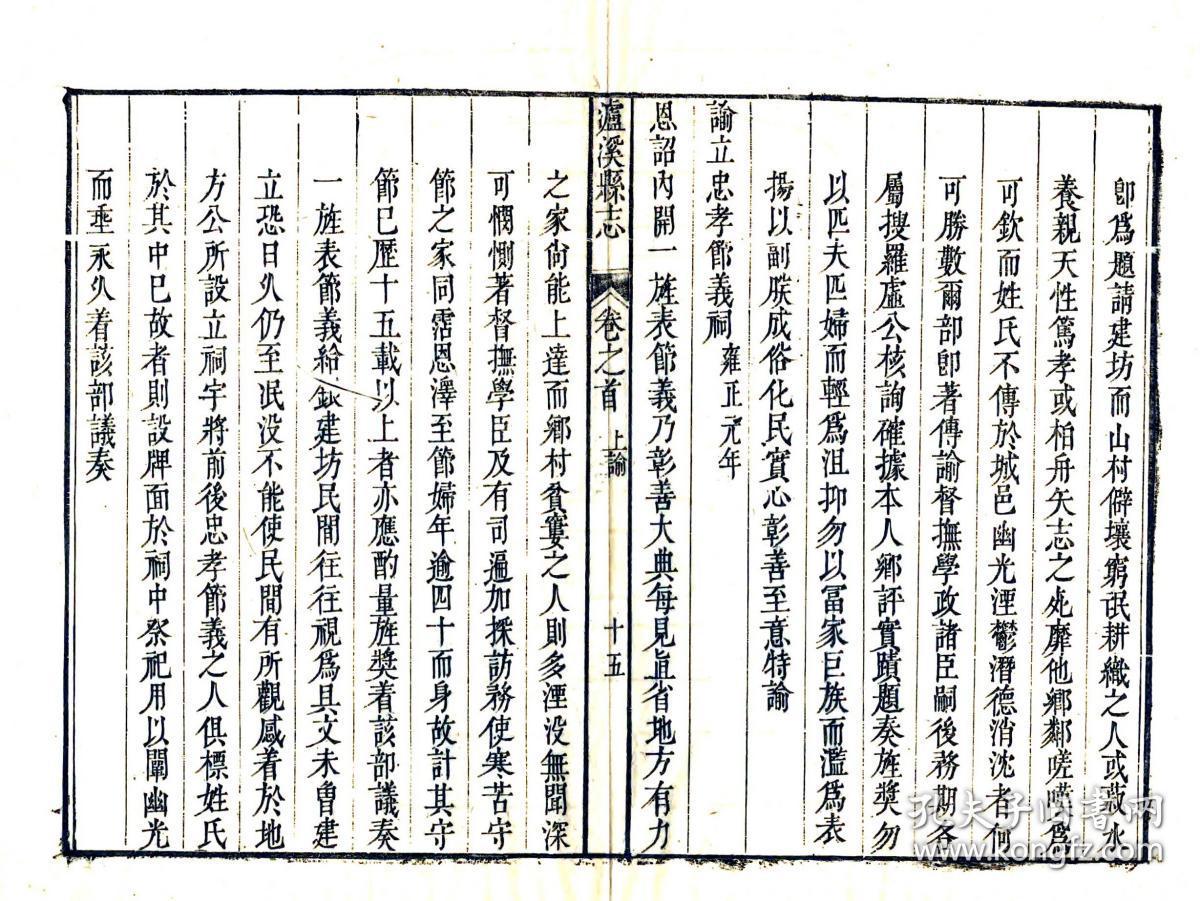 卽爲題請建坊而山村僻壤窮氓耕織之人或菽水
養親天性篤孝或栢舟矢志之死靡他鄉鄰嗟嘆爲
可欽而姓氏不傳於城邑幽光湮鬱潛德消沈者何
可勝數爾部卽著傳諭督撫學政諸臣嗣後務期各
屬搜羅虛公核詢確據本人鄉評實蹟題奏旌獎勿
以匹夫匹婦而輕爲沮抑勿以富家巨族而濫爲表
揚以副朕成俗化民實心彰善至意特諭
諭立忠孝節義祠 雍正元年
恩詔內開一旌表節義乃彰善大典每見直省地方有力
瀘溪縣志 卷之首 上諭 十五
之家尙能上達而鄉村貧寠之人則多湮没無聞深
可憫惻著督撫學臣及有司遍加採訪務使寒苦守
節之家同霑恩澤至節婦年逾四十而身故計其守
節已歷十五載以上者亦應酌量旌獎着該部議奏
一旌表節義給銀建坊民間往往視爲具文未曾建
立恐日久仍至泯没不能使民間有所觀感着於地
方公所設立祠宇將前後忠孝節義之人俱標姓氏
於其中已故者則設牌面於祠中祭祀用以闡幽光
而垂永久着該部議奏
孔夫子旧书网
www.kongfz.com